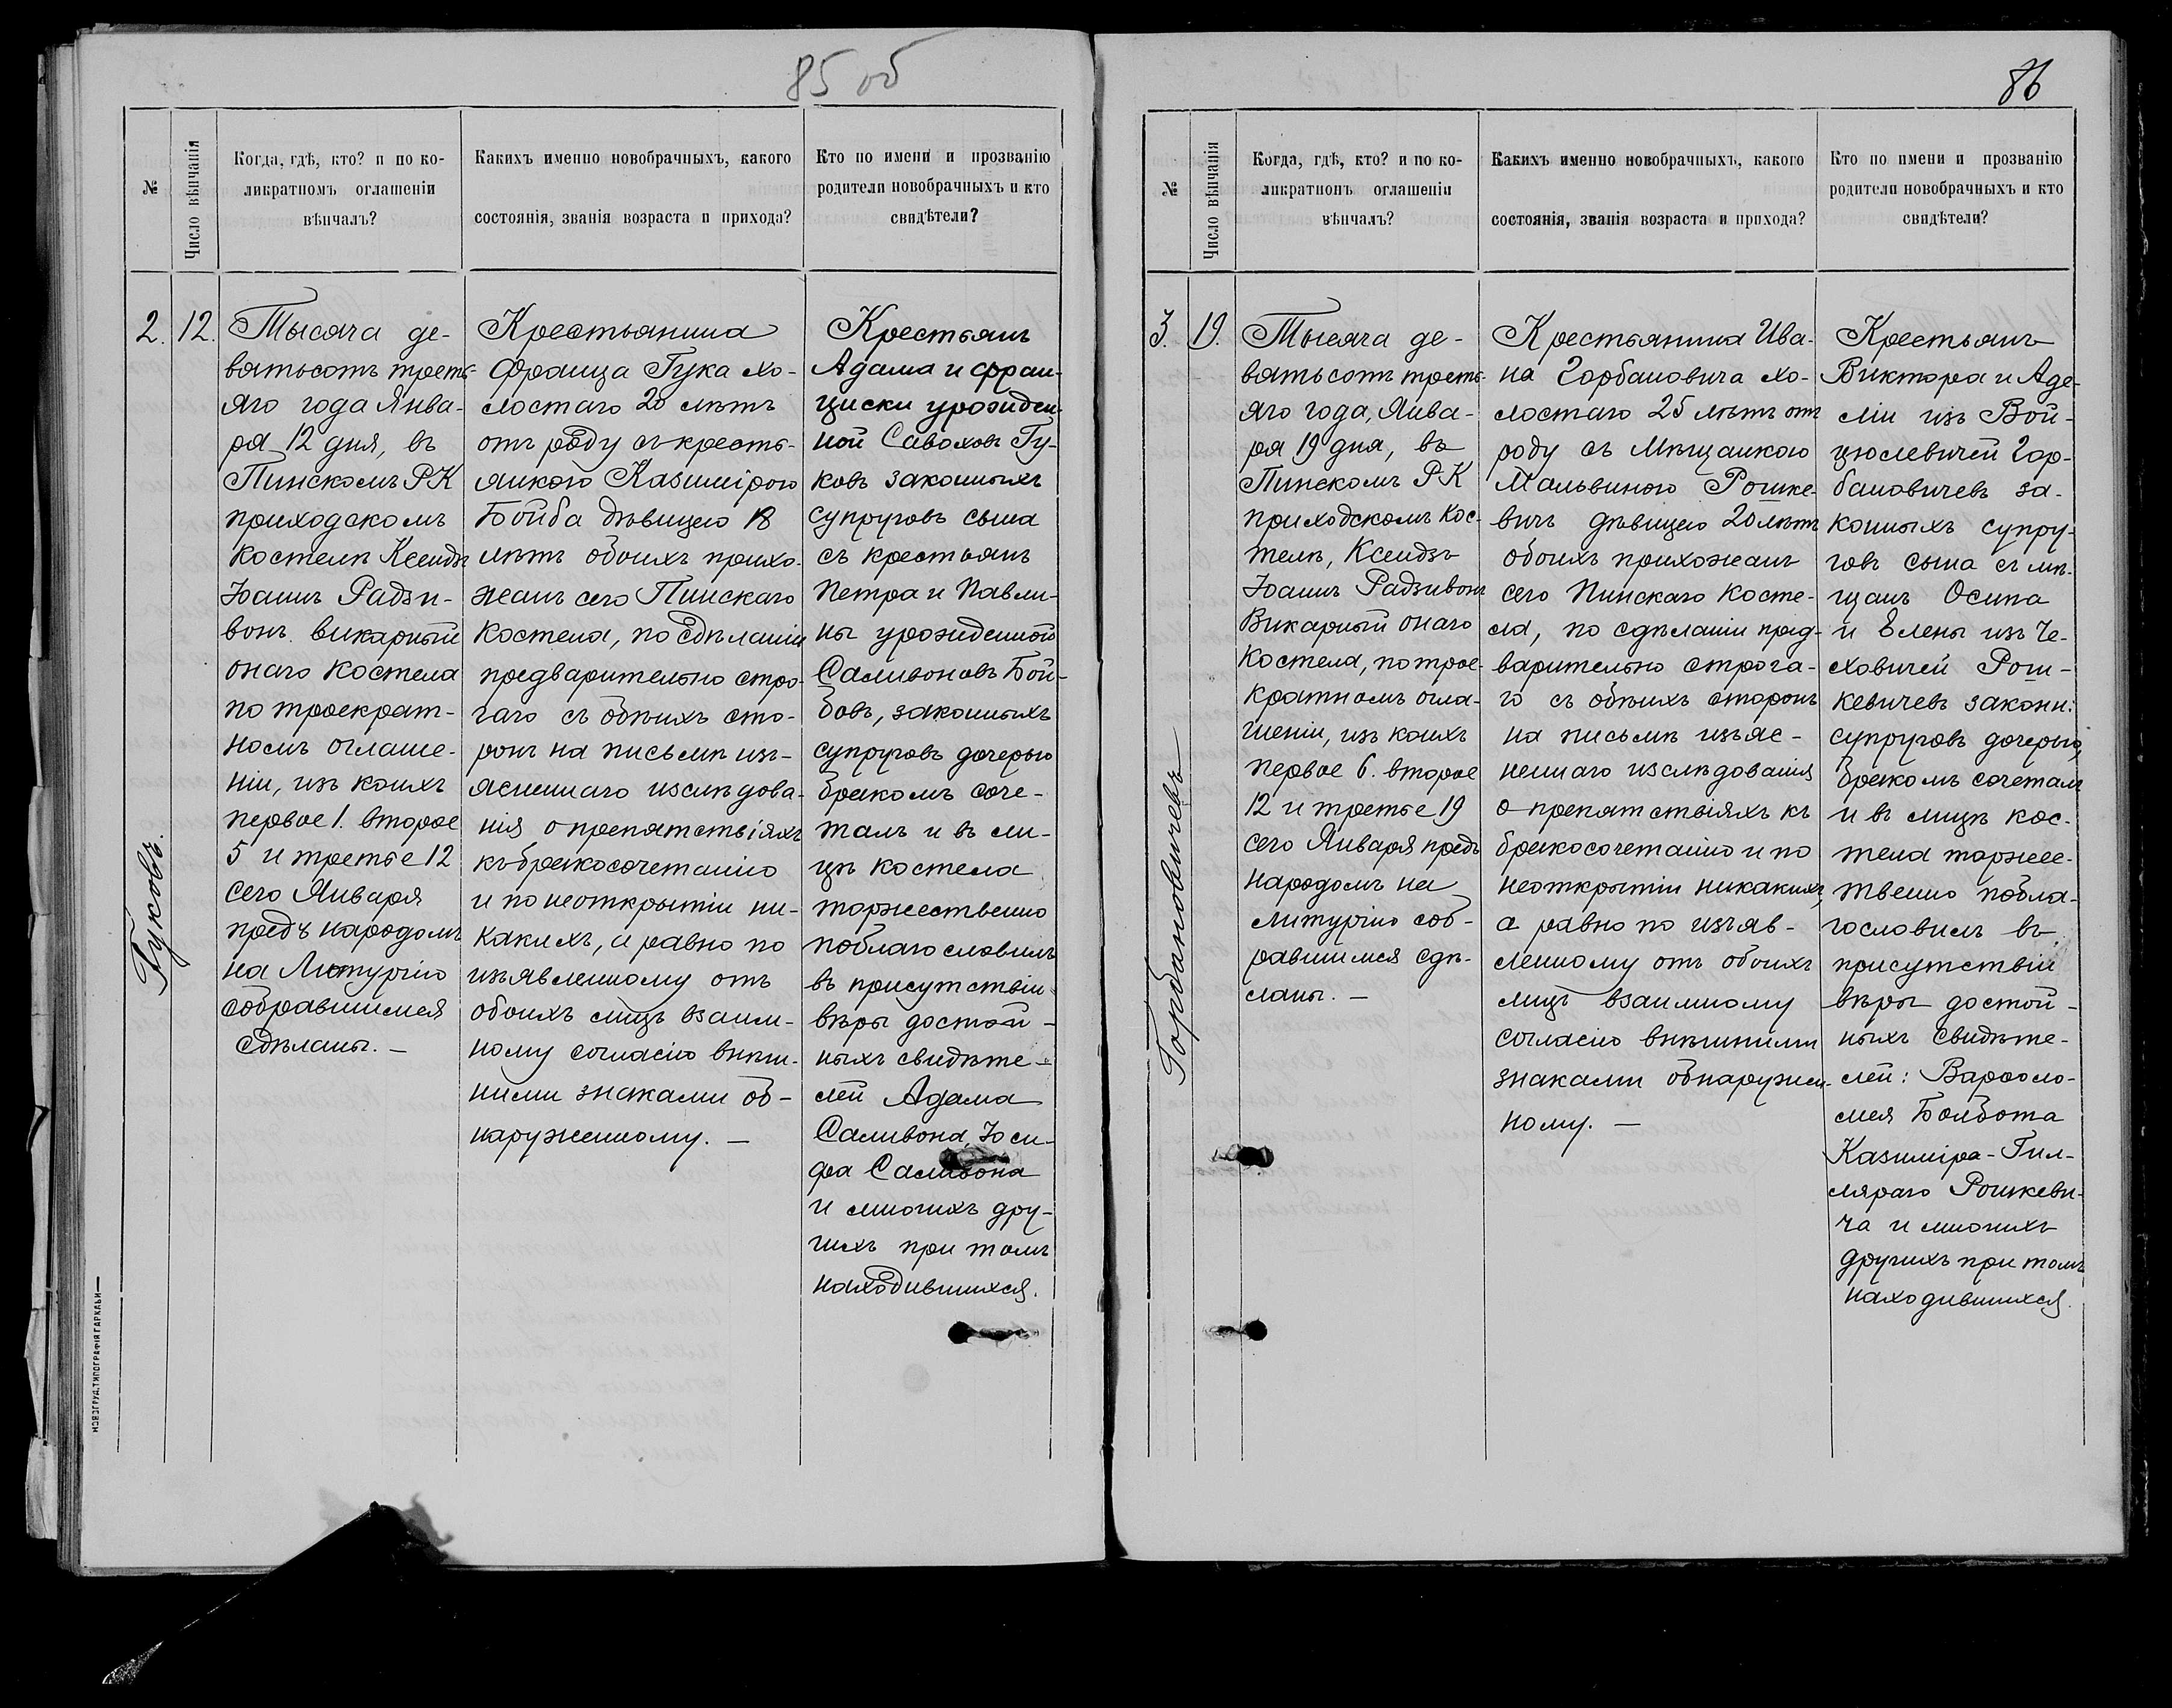 85 об
№
Число вѣнчанія
Когда, гдѣ, кто? и по ко-
ликратномъ оглашеніи
вѣнчалъ?
Какихъ именно новобрачныхъ, какого
состоянія, званія возраста и прихода?
Кто по имени и прозванію
родители новобрачныхъ и кто
свидѣтели?
2.
12.
Гуковъ.
Тысяча де-
вятьсотъ треть-
яго года Янва-
ря 12 дня, въ
Пинскомъ РК
приходскомъ
костелѣ Ксендзъ
Іоаннъ Радзи-
вонъ викарный
онаго костела
по троекрат-
номъ оглаше-
ніи, изъ коихъ
первое 1. второе
5 и третье 12
сего Января
предъ народомъ
на Литургію
собравшимся
сдѣланы. —
Крестьянина
Франца Гука хо-
лостаго 20 лѣтъ
отъ роду съ кресть-
янкою Казимірою
Бойба дѣвицею 18
лѣтъ обоихъ прихо-
жанъ сего Пинскаго
костела, по сдѣланіи
предварительно стро-
гаго съ обѣихъ сто-
ронъ на письмѣ изъ-
ясненнаго изслѣдова-
нія о препятствіяхъ
къ бракосочетанію
и по неоткрытіи ни-
какихъ, а равно по
изъявленному отъ
обоихъ лицъ взаим-
ному согласію внѣш-
ними знаками об-
наруженному. —
Крестьянъ
Адама и Фран-
циски урожден-
ной Савохов Гу-
ковъ законныхъ
супруговъ сына
съ крестьянъ
Петра и Павли-
ны урожденной
Саливоновъ Бой-
бовъ, законныхъ
супруговъ дочерью
бракомъ соче-
талъ и въ ли-
цѣ костела
торжественно
поблагословилъ
въ присутствіи
вѣры достой-
ныхъ свидѣте-
лей Адама
Саливона, Іоси-
фа Саливона
и многихъ дру-
гихъ при томъ
находившихся.
НОВОГРУД. ТИПОГРАФІЯ ГАРКАВИ
86
№
Число вѣнчанія
Когда, гдѣ, кто? и по ко-
ликратномъ оглашеніи
вѣнчалъ?
Какихъ именно новобрачныхъ, какого
состоянія, званія возраста и прихода?
Кто по имени и прозванію
родители новобрачныхъ и кто
свидѣтели?
3.
19.
Горбановичевъ
Тысяча де-
вятьсотъ треть-
яго года, Янва-
ря 19 дня, въ
Пинскомъ РК
приходскомъ кос-
телѣ, Ксендзъ
Іоаннъ Радзивонъ
Викарный онаго
костела, по трое-
кратномъ огла-
шеніи, изъ коихъ
первое 6. второе
12 и третье 19
сего Января предъ
народомъ на
литургію соб-
равшимся сдѣ-
ланы. —
Крестьянина Ива-
на Горбановича хо-
лостаго 25 лѣтъ отъ
роду съ Мѣщанкою
Мальвиною Рошке-
вичъ дѣвицею 20 лѣтъ
обоихъ прихожанъ
сего Пинскаго Косте-
ла, по сдѣланіи пред-
варительно строга-
го съ обѣихъ сторонъ
на письмѣ изъяс-
неннаго изслѣдованія
о препятствіяхъ къ
бракосочетанію и по
неоткрытіи никакихъ,
а равно по изъяв-
ленному отъ обоихъ
лицъ взаимному
согласію внѣшними
знаками обнаружен-
ному. —
Крестьянъ
Виктора и Аде-
ліи изъ Вой-
цюлевичей Гор-
бановичевъ за-
конныхъ супру-
говъ сына съ мѣ-
щанъ Осипа
и Елены изъ Че-
ховичей Рош-
кевичевъ законн:
супруговъ дочерью,
бракомъ сочеталъ
и въ лицѣ кос-
тела торжес-
твенно побла-
гословилъ въ
присутствіи
вѣры достой-
ныхъ свидѣте-
лей: Варѳоло-
мея Болбота
Казиміра-Гил-
ляраго Рошкеви-
ча и многихъ
другихъ при томъ
находившихся.